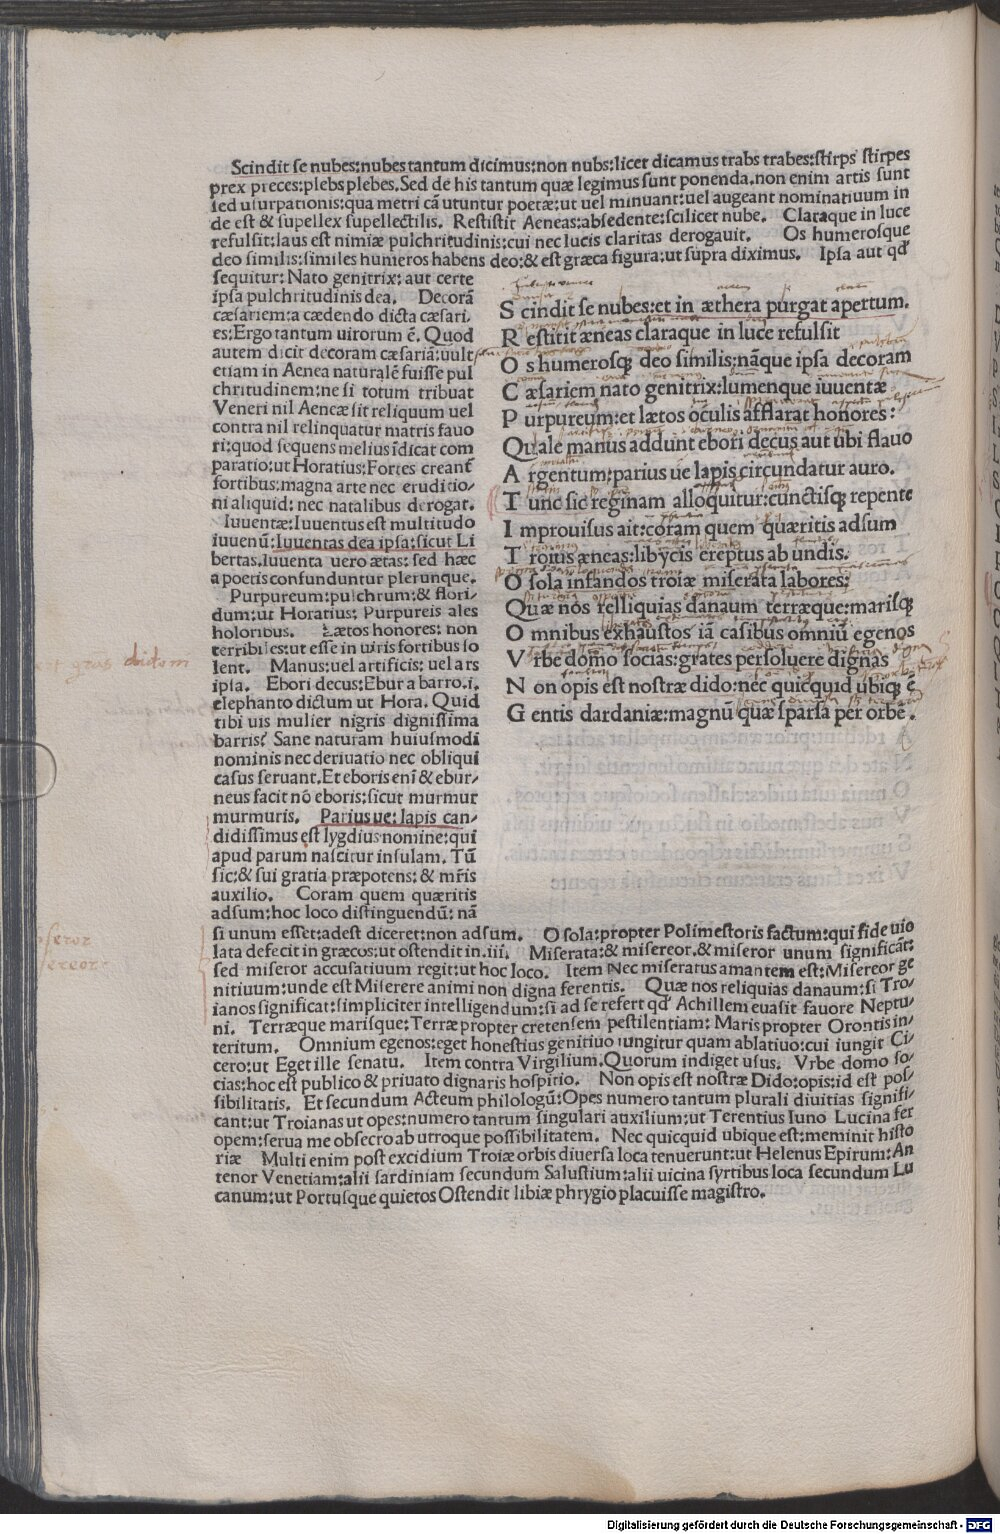 Scindit se nubes:nubes tantum dicimus:non nubs:licet dicamus trabs trabes:stirps stirpes
prex preces:plebs plebes. Sed de his tantum quæ legimus sunt ponenda.non enim artis sunt
sed usurpationis:qua metri cā utuntur poetæ:ut uel minuant:uel augeant nominatiuum in
de est & supellex supellectilis. Restistit Aeneas:absedente:scilicet nube. Claraque in luce
refulsit:laus est nimiæ pulchritudinis:cui nec lucis claritas derogauit. Os humerosque
deo similis:similes humeros habens deo:& est græca figura:ut supra diximus. Ipsa aut qđ
sequitur:Nato genitrix:aut certe
ipsa pulchritudinis dea. Decorā
cæsariem:a cædendo dicta cæsari-
es:Ergo tantum uirorum ē. Quod
autem dicit decoram cæsariā:uult
etiam in Aenea naturalē fuisse pul
chritudinem:ne si totum tribuat
Veneri nil Aeneæ sit reliquum uel
contra nil relinquatur matris fauo
ri:quod sequens melius īdicat com
paratio:ut Horatius:Fortes creant̄
fortibus:magna arte nec eruditio-
ni aliquid: nec natalibus derogat.
Iuuentæ:Iuuentus est multitudo
iuuenū:Iuuentas dea ipsa:sicut Li
bertas.Iuuenta uero ætas: sed hæc
a poetis confunduntur plerunque.
Purpureum:pulchrum:& flori-
dum:ut Horatius: Purpureis ales
holoribus. Lætos honores: non
terribiles:ut esse in uiris fortibus so
lent. Manus:uel artificis: uel ars
ipsa. Ebori decus:Ebur a barro.i.
elephanto dictum ut Hora. Quid
tibi uis mulier nigris dignissima
barris? Sane naturam huiusmodi
nominis nec deriuatio nec obliqui
casus seruant.Et eboris enī & ebur-
neus facit nō eboris:sicut murmur
murmuris. Parius ue: lapis can-
didissimus est lygdius nomine:qui
apud parum nascitur insulam. Tū
sic:& sui gratia præpotens: & mr̄is
auxilio. Coram quem quæritis
adsum:hoc loco distinguendū: nā
S cindit se nubes:et in æthera purgat apertum.
R estitit æneas claraque in luce refulsit
O s humerosq; deo similis:nāque ipsa decoram
C æsariem nato genitrix:lumenque iuuentæ
P urpureum:et lætos oculis afflarat honores:
Quale manus addunt ebori decus aut ubi flauo
A rgentum:parius ue lapis circundatur auro.
T unc sic reginam alloquitur:cunctisq; repente
I mprouisus ait:coram quem quæritis adsum
T roius æneas:libycis ereptus ab undis.
O sola infandos troiæ miserata labores:
Quæ nos relliquias danaum terræque:marisq;
O mnibus exhaustos iā casibus omniū egenos
V rbe domo socias:grates persoluere dignas
N on opis est nostræ dido:nec quicquid ubiq; ē
G entis dardaniæ:magnū quæ sparsa per orbē.
si unum esset:adest diceret:non adsum. O sola:propter Polimestoris factum:qui fide uio
lata defecit in græcos:ut ostendit in.iii. Miserata:& misereor.& miseror unum significāt:
sed miseror accusatiuum regit:ut hoc loco. Item Nec miseratus amantem est:Misereor ge
nitiuum:unde est Miserere animi non digna ferentis. Quæ nos reliquias danaum:si Tro-
ianos significat:simpliciter intelligendum:si ad se refert qđ Achillem euasit fauore Neptu-
ni. Terræque marisque:Terræ propter cretensem pestilentiam: Maris propter Orontis in-
teritum. Omnium egenos:eget honestius genitiuo iungitur quam ablatiuo:cui iungit Ci-
cero:ut Eget ille senatu. Item contra Virgilium.Quorum indiget usus. Vrbe domo so-
cias:hoc est publico & priuato dignaris hospitio. Non opis est nostræ Dido:opis:id est pos-
sibilitatis. Et secundum Acteum philologū:Opes numero tantum plurali diuitias signifi-
cant:ut Troianas ut opes:numero tantum singulari auxilium:ut Terentius Iuno Lucina fer
opem:serua me obsecro ab utroque possibilitatem. Nec quicquid ubique est:meminit histo
riæ Multi enim post excidium Troiæ orbis diuersa loca tenuerunt:ut Helenus Epirum:An
tenor Venetiam:alii sardiniam secundum Salustium:alii uicina syrtibus loca secundum Lu
canum:ut Portusque quietos Ostendit libiæ phrygio placuisse magistro.
Digitalisierung gefördert durch die Deutsche Forschungsgemeinschaft - DFG